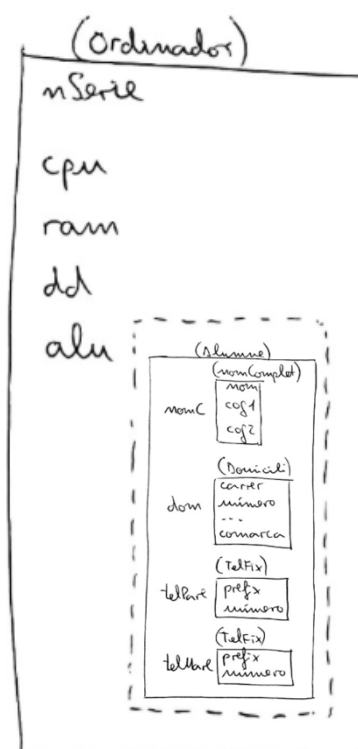 (Ordinador)
nSerie
cpu
ram
dd
alu
(Alumne)
(nomComplet)
nomC
nom
cog1
cog2
(Domicili)
dom
carrer
número
...
comarca
(TelFix)
telPare
prefix
número
(TelFix)
telMare
prefix
número